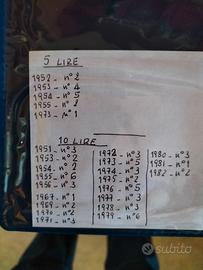 5 LIRE
1952 - n° 2
1953 - n° 4
1954 - n° 5
1955 - n° 2
1973 - n° 1
10 LIRE
1951 - n° 3
1953 - n° 2
1954 - n° 2
1955 - n° 6
1956 - n° 3
1967 - n° 1
1969 - n° 2
1970 - n° 2
1971 - n° 3
1972 - n° 3
1973 - n° 3
1974 - n° 3
1975 - n° 2
1976 - n° 5
1977 - n° 3
1978 - n° 3
1979 - n° 6
1980 - n° 3
1981 - n° 1
1982 - n° 2
subito